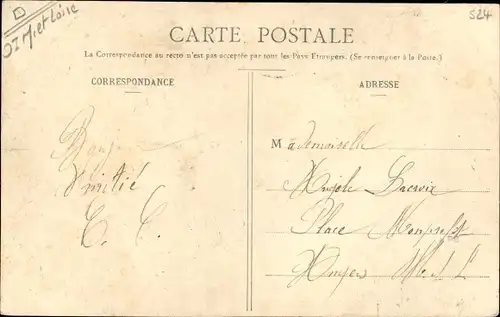 D
M. et Loire
524
CARTE POSTALE
La Correspondance au recto n'est pas acceptée par tous les Pays Etrangers. (Se renseigner à la Poste.)
CORRESPONDANCE
ADRESSE
Amitié
Mademoiselle
Lacroix
Place
Angers